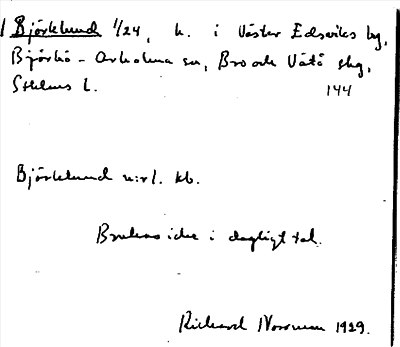 Björklund 1/24, h. i Väster Edsviks by,
Björkö-Arholma sn, Bro och Vätö skg,
Sthlms l. 144
Björklund n:r 1. kb.
Brukas icke i dagligt tal.
Richard Norrman 1929.